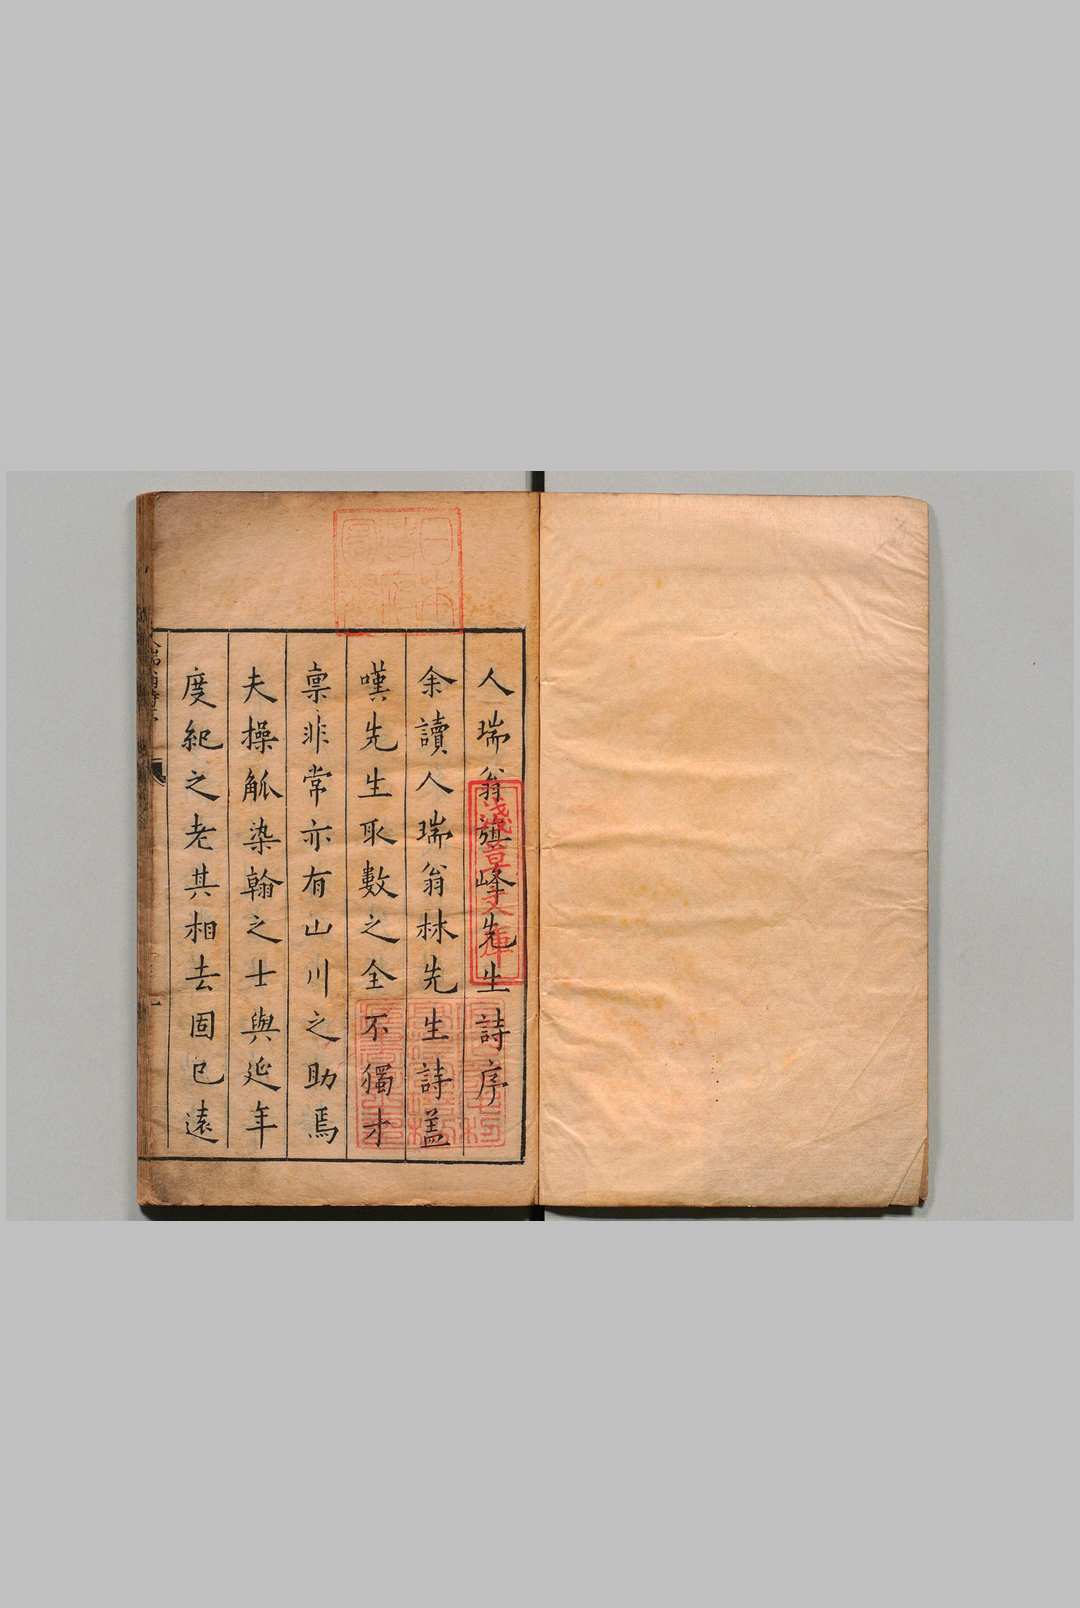 人瑞翁旗峰先生詩序
余讀人瑞翁林先生詩蓋
嘆先生取數之全不獨才
禀非常亦有山川之助焉
夫操觚染翰之士與延年
度紀之老其相去固已遠
淺草文庫